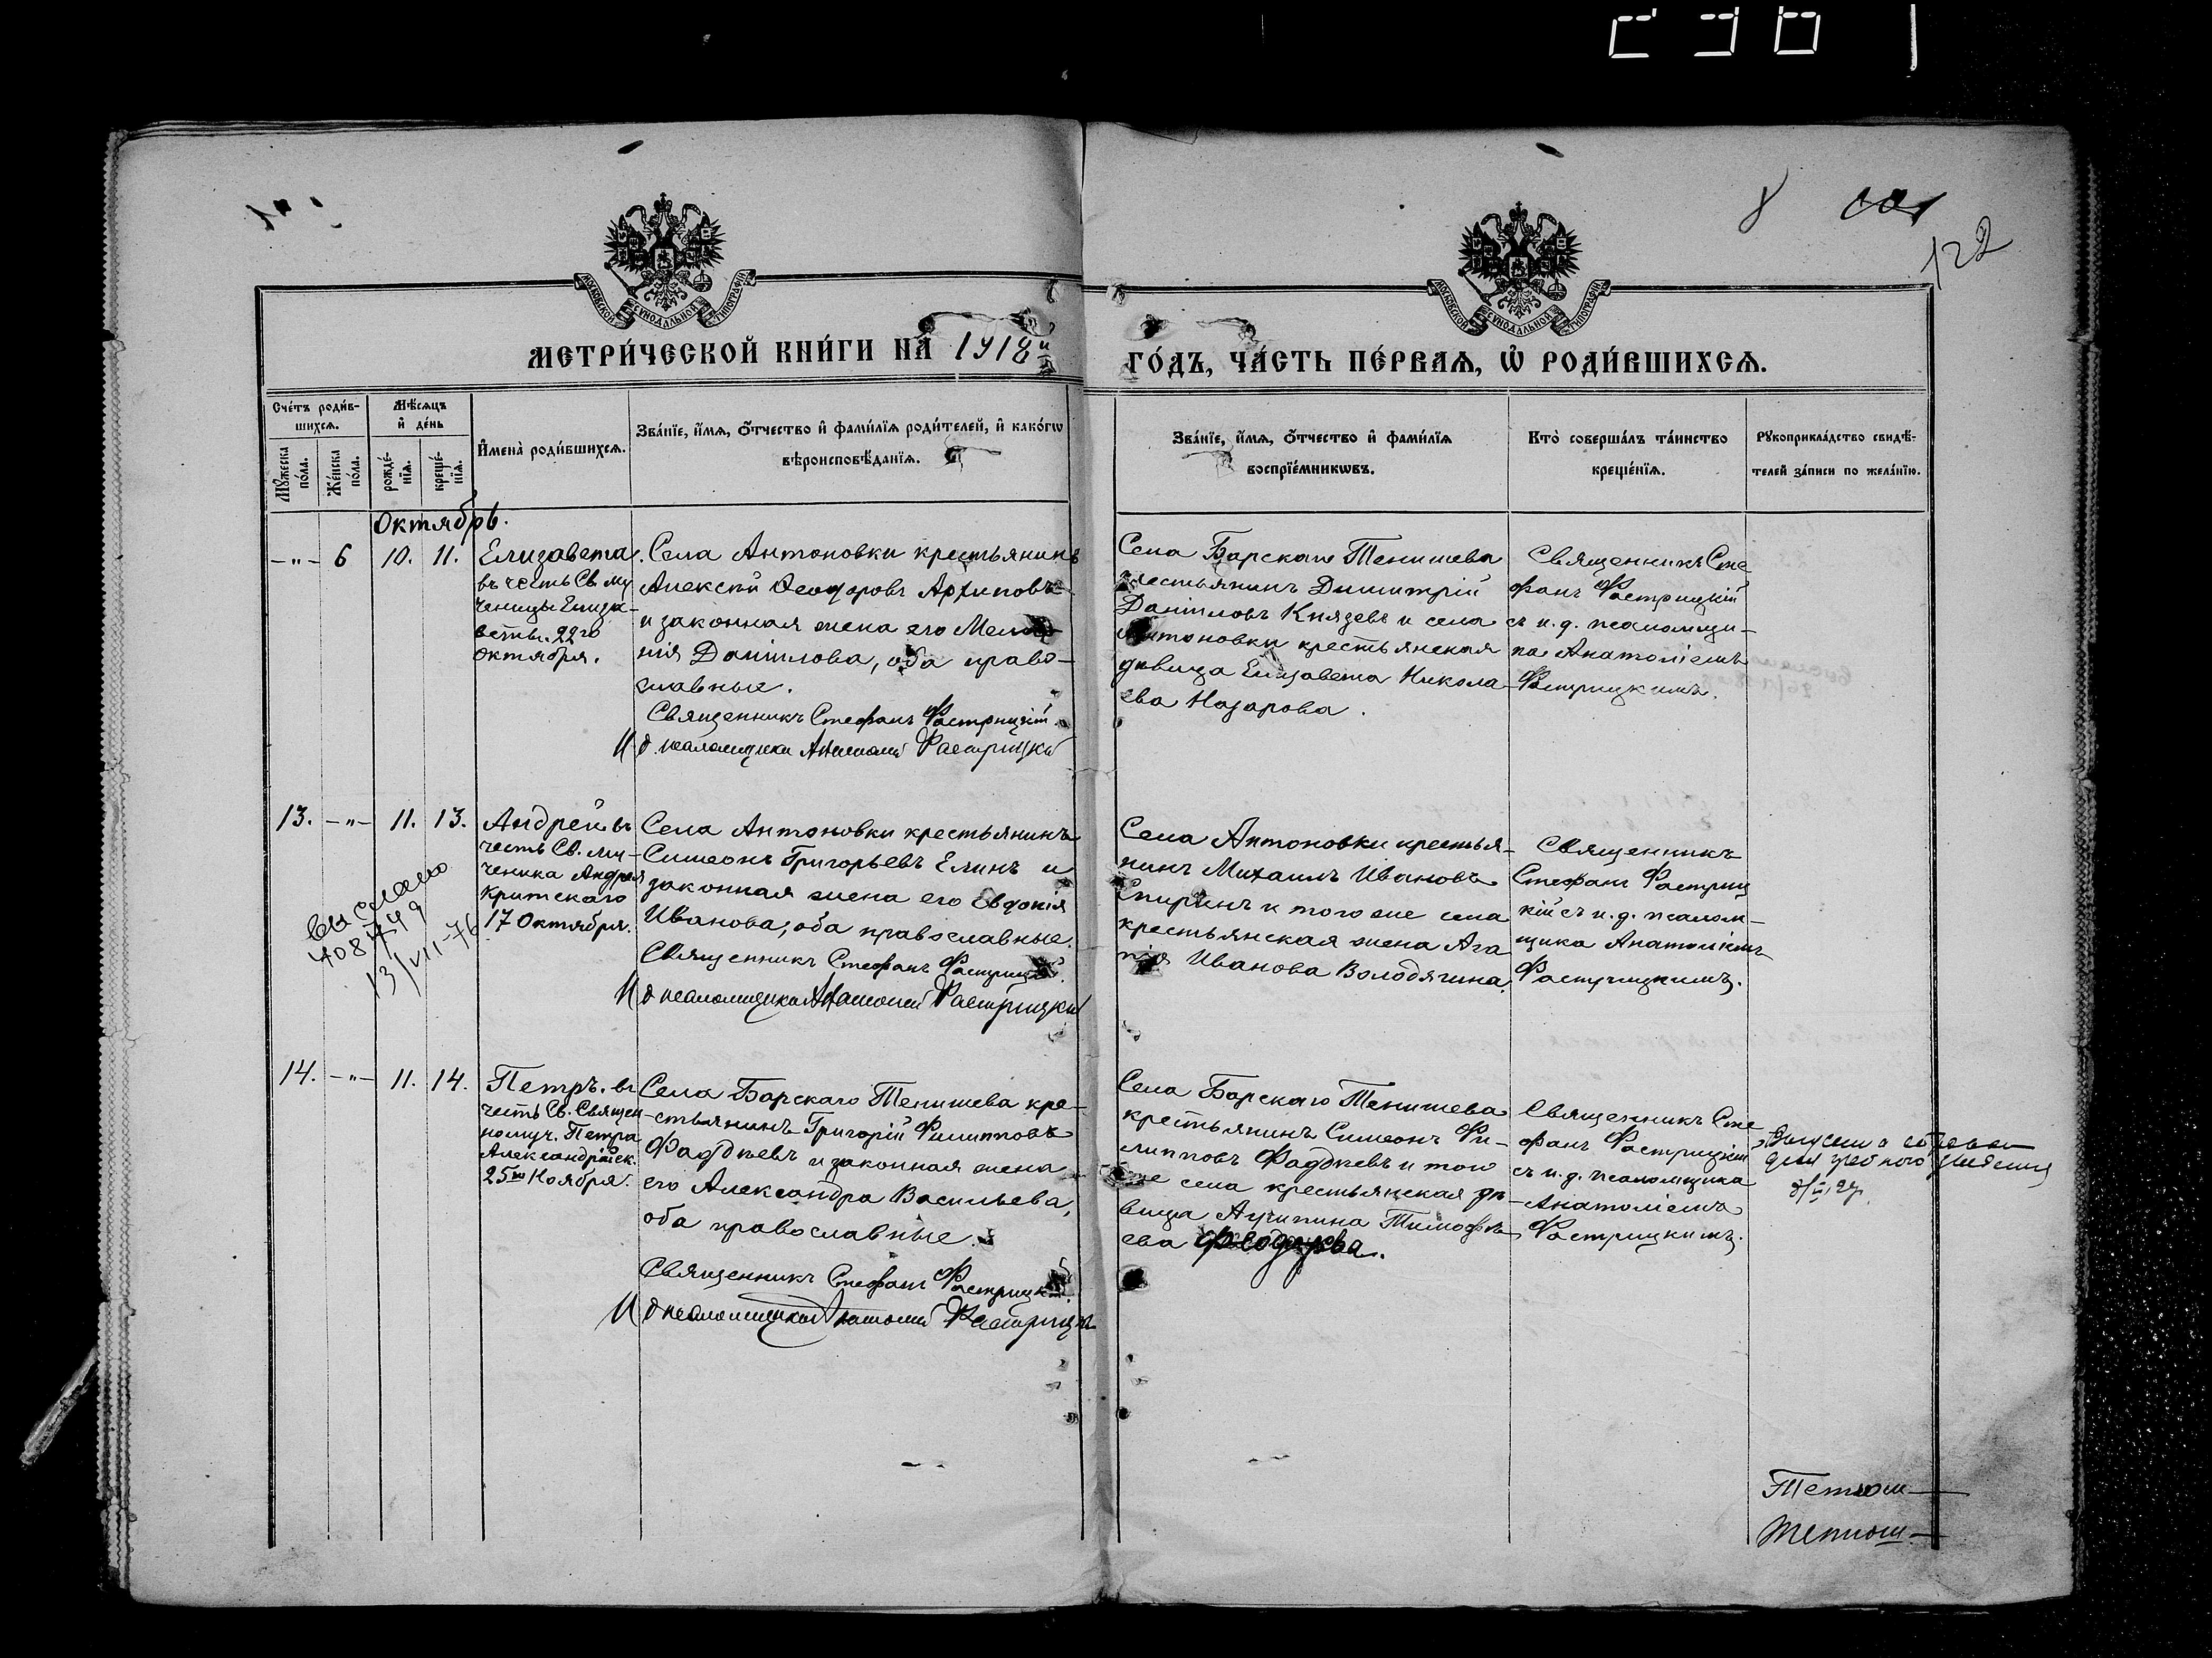 122
МОСКОВСКОЙ СѴНОДАЛЬНОЙ ТИПОГРАФІИ
МОСКОВСКОЙ СѴНОДАЛЬНОЙ ТИПОГРАФІИ
МЕТРИ́ЧЕСКОЙ КНИ́ГИ НА̀ 1918й ГО́ДЪ, ЧА́СТЬ ПЕ́РВАѦ, Ѡ҆ РОДИ́ВШИХСѦ.
Сче́тъ роди́в-
шихсѧ.
Мꙋжеска по́ла.
Же́нска по́ла.
Мѣ́сѧцъ
и҆ де́нь
рожде́-
нїѧ.
креще́-
нїѧ.
И҆мена̀ роди́вшихсѧ.
Зва́нїе, и҆́мѧ, о҆́тчество и҆ фами́лїѧ роди́телей, и҆ како́гѡ
вѣроисповѣ́данїѧ.
Зва́нїе, и҆́мѧ, о҆́тчество и҆ фами́лїѧ
воспрїе́мникѡвъ.
Кто̀ соверша́лъ та́инство
креще́нїѧ.
Рꙋкоприкла́дство свидѣ́-
телей за́писи по жела́нїю.
Октябрь.
-"- 6 10. 11.
Елизавета
въ честь Св. му
ченицы Елиза-
веты. 22го
Октября.
Села Антоновки крестьянинъ
Алексѣй Ѳеодоровъ Архиповъ
и законная жена его Мела-
нія Данилова, оба право-
славные.
Священникъ Стефанъ Фастрицкій.
И д. псаломщика Анатолій Фастрицкій
Села Барскаго Тенишева
крестьянинъ Димитрій
Даніиловъ Князевъ и села
Антоновки крестьянская
дѣвица Елизавета Никола-
ева Назарова.
Священникъ Сте
фанъ Фастрицкій
съ и. д. псаломщи-
ка Анатоліемъ
Фастрицкимъ.
13. -"- 11. 13.
Андрей въ
честь Св. му-
ченика Андрея
Критскаго
17 Октября.
Села Антоновки крестьянинъ
Симеонъ Григорьевъ Елинъ и
законная жена его Евдокія
Иванова, оба православные.
Священникъ Стефанъ Фастрицкій.
И д псаломщика Анатолій Фастрицкій
Села Антоновки крестья-
нинъ Михаилъ Ивановъ
Спиринъ и того же села
крестьянская жена Ага
пія Иванова Володягина.
Священникъ
Стефанъ Фастриц
кій съ и. д. псалом-
щика Анатоліемъ
Фастрицкимъ.
выслано
408749
13/VII-76
14. -"- 11. 14.
Петръ. въ
честь Св. Священ
номуч. Петра
Александрійск.
25го Ноября.
Села Барскаго Тенишева кре-
стьянинъ Григорій Филипповъ
Фаддѣевъ и законная жена
его Александра Васильева,
оба православные.
Священникъ Стефанъ Фастрицкій.
И д псаломщика Анатолій Фастрицкій
Села Барскаго Тенишева
крестьянинъ Симеонъ Фи-
липповъ Фаддѣевъ и того
же села крестьянская дѣ-
вица Агрипина Тимофѣ
ева Феодорова.
Священникъ Сте
фанъ Фастрицкій
съ и. д. псаломщика
Анатоліемъ
Фастрицкимъ.
Тетюш
Тетюш